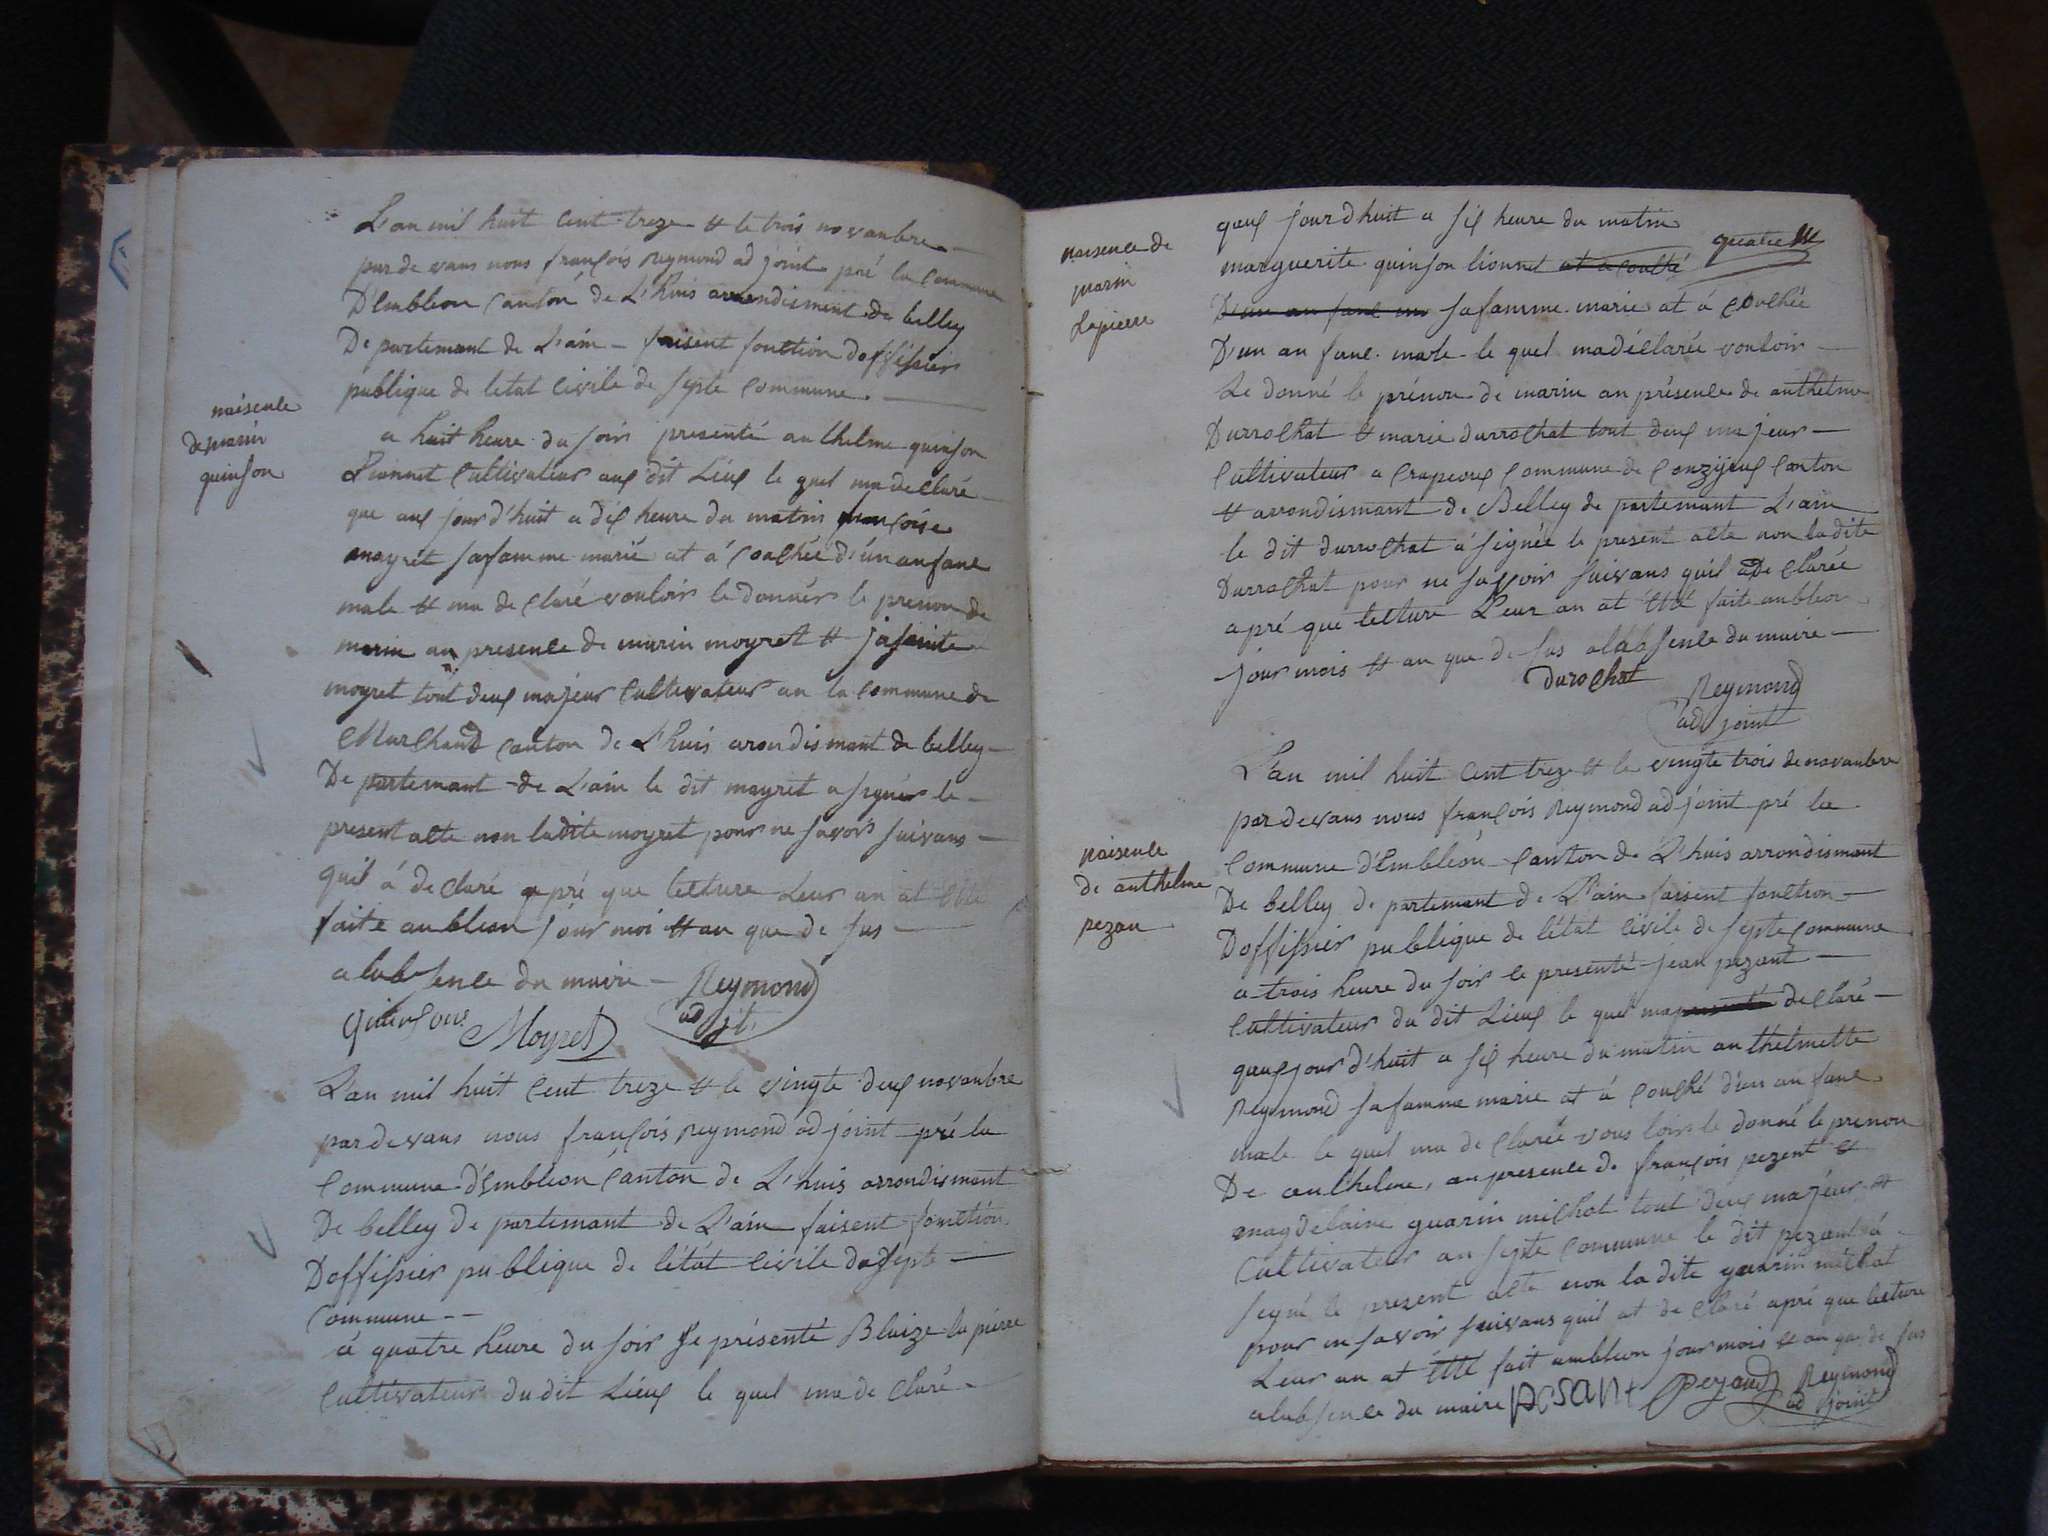 L'an mil huit cent treze et le trois novanbre
par de vans nous françois Reymond ad joint pré la commune
D'Embleon canton de L'huis arrondisment de belley
De partemant de L'ain faisent fonction doffissier
publique de letat civile de septe commune.
naisence
de marin
quinson
a huit heure du soir presenté anthelme quinson
Lionnet cultivateur aux dit Lieux le quel ma declaré
que aux jour d'huit a dix heure du matin françoise
moyrét sa famme marié at á couchée d'un anfane
male et ma de claré vouloir le donnér le prenon de
marin an presence de marin moyret et jasainte
moyret tout deux majeur cultivateur an la commune de
Marchand canton de L'huis arondismant de belley
De partemant de L'ain le dit mayret a signér le
present acte non ladite moyret pour ne savoir suivans
quil á de claré apré que lecture Leur an at été
faite anbleon jour moi et an que de sus
a labsence du maire Reymond
quinson Moyret ad jt
L'an mil huit cent treze et le vingte deux novanbre
par de vans nous françois Reymond ad joint pré la
commune d'Embleon canton de L'huis arrondismant
De belley de partemant de L'ain faisent fonction
Doffissier publique de létat civile de septe
commune
á quatre heure du soir se présenté Blaize la piérre
cultivateur du dit Lieux le quel ma de claré
naisence de
marin
Lapierre
quex jour d huit a six heure du matin
marguerite quinson lionnet at a couché
quatre
D'un an fane un sa famme marie at á couchée
D'un an fane male le quel ma déclarée vouloir
Le donné le prénon de marin an présence de anthelme
Durrochat et marie durrochat tout deux majeur
cultivateur a crapeoux commune de conzijeux canton
et arrondismant de Belley de partemant L'ain
le dit durrochat á signée le present acte non ladite
Durrochat pour ne savoir suivans quil a De clarée
apré que lecture Leur an at été faite anbleon
jour mois et an que de sus a labsence du maire
Durochat Reymond
ad joint
naisence
de anthelme
pezan
L'an mil huit cent treze et le vingte trois de novanbre
par devans nous françois Reymond ad joint pré la
commune d'Embleon canton de L'huis arrondismant
De belley de partemant de L'ain faisent fonction
Doffissier publique de létat civile de septe commune
a trois heure du soir ce presenté jean pezant
cultivateur du dit Lieux le quel ma declaré
quex jour d'huit a six heure du matin anthelmette
Reymond sa famme marie at á couché d'un an fane
male le quel ma de clarée vous loir le donné le prenon
De anthelme, an presence de françois pezent et
magdelaine guarin michat tout deux majeur et
cultivateur an septe commune le dit pezant á
signé le present acte non la dite guarin michat
pour ne savoir suivans quil at de claré apré que lecture
Leur an at été fait anbleon jour mois et an que de sus
a labsence du maire pesant Pezand Reymond
ad joint